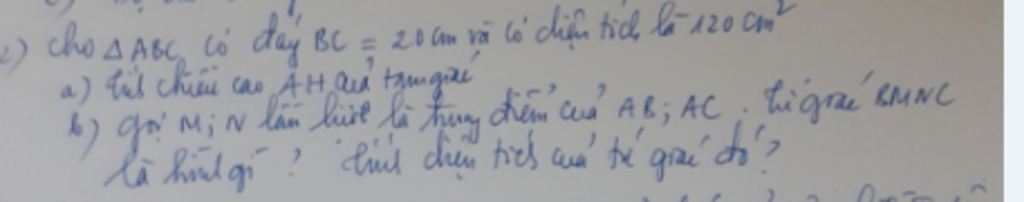 2) Cho △ABC có đáy BC = 20cm và có diện tích là 120 cm²
a) Tính chiều cao AH của tam giác
b) Gọi M; N lần lượt là trung điểm của AB; AC. Tứ giác BMNC
là hình gì? Tính diện tích của tứ giác đó?